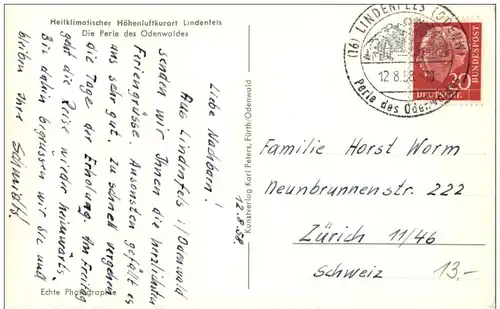 Heilklimatischer Höhenluftkurort Lindenfels
Die Perle des Odenwaldes
12.8.58.
Liebe Nachbarn!
Aus Lindenfels i/Odenwald
senden wir Ihnen die herzlichsten
Feriengrüsse. Ansonsten gefällt es
uns sehr gut. Zu schnell vergehen
die Tage der Erholung. Am Freitag
geht die Reise wieder heimwärts.
Bis dahin begrüssen wir Sie und
bleiben Ihre Schmidts!
Echte Photographie
Kunstverlag Karl Peters, Fürth-Odenwald
(16) LINDENFELS (ODENW)
12.8.58
Perle des Odenwaldes
DEUTSCHE BUNDESPOST
20
Familie Horst Worm
Neunbrunnenstr. 222
Zürich 11/46
Schweiz
13.-